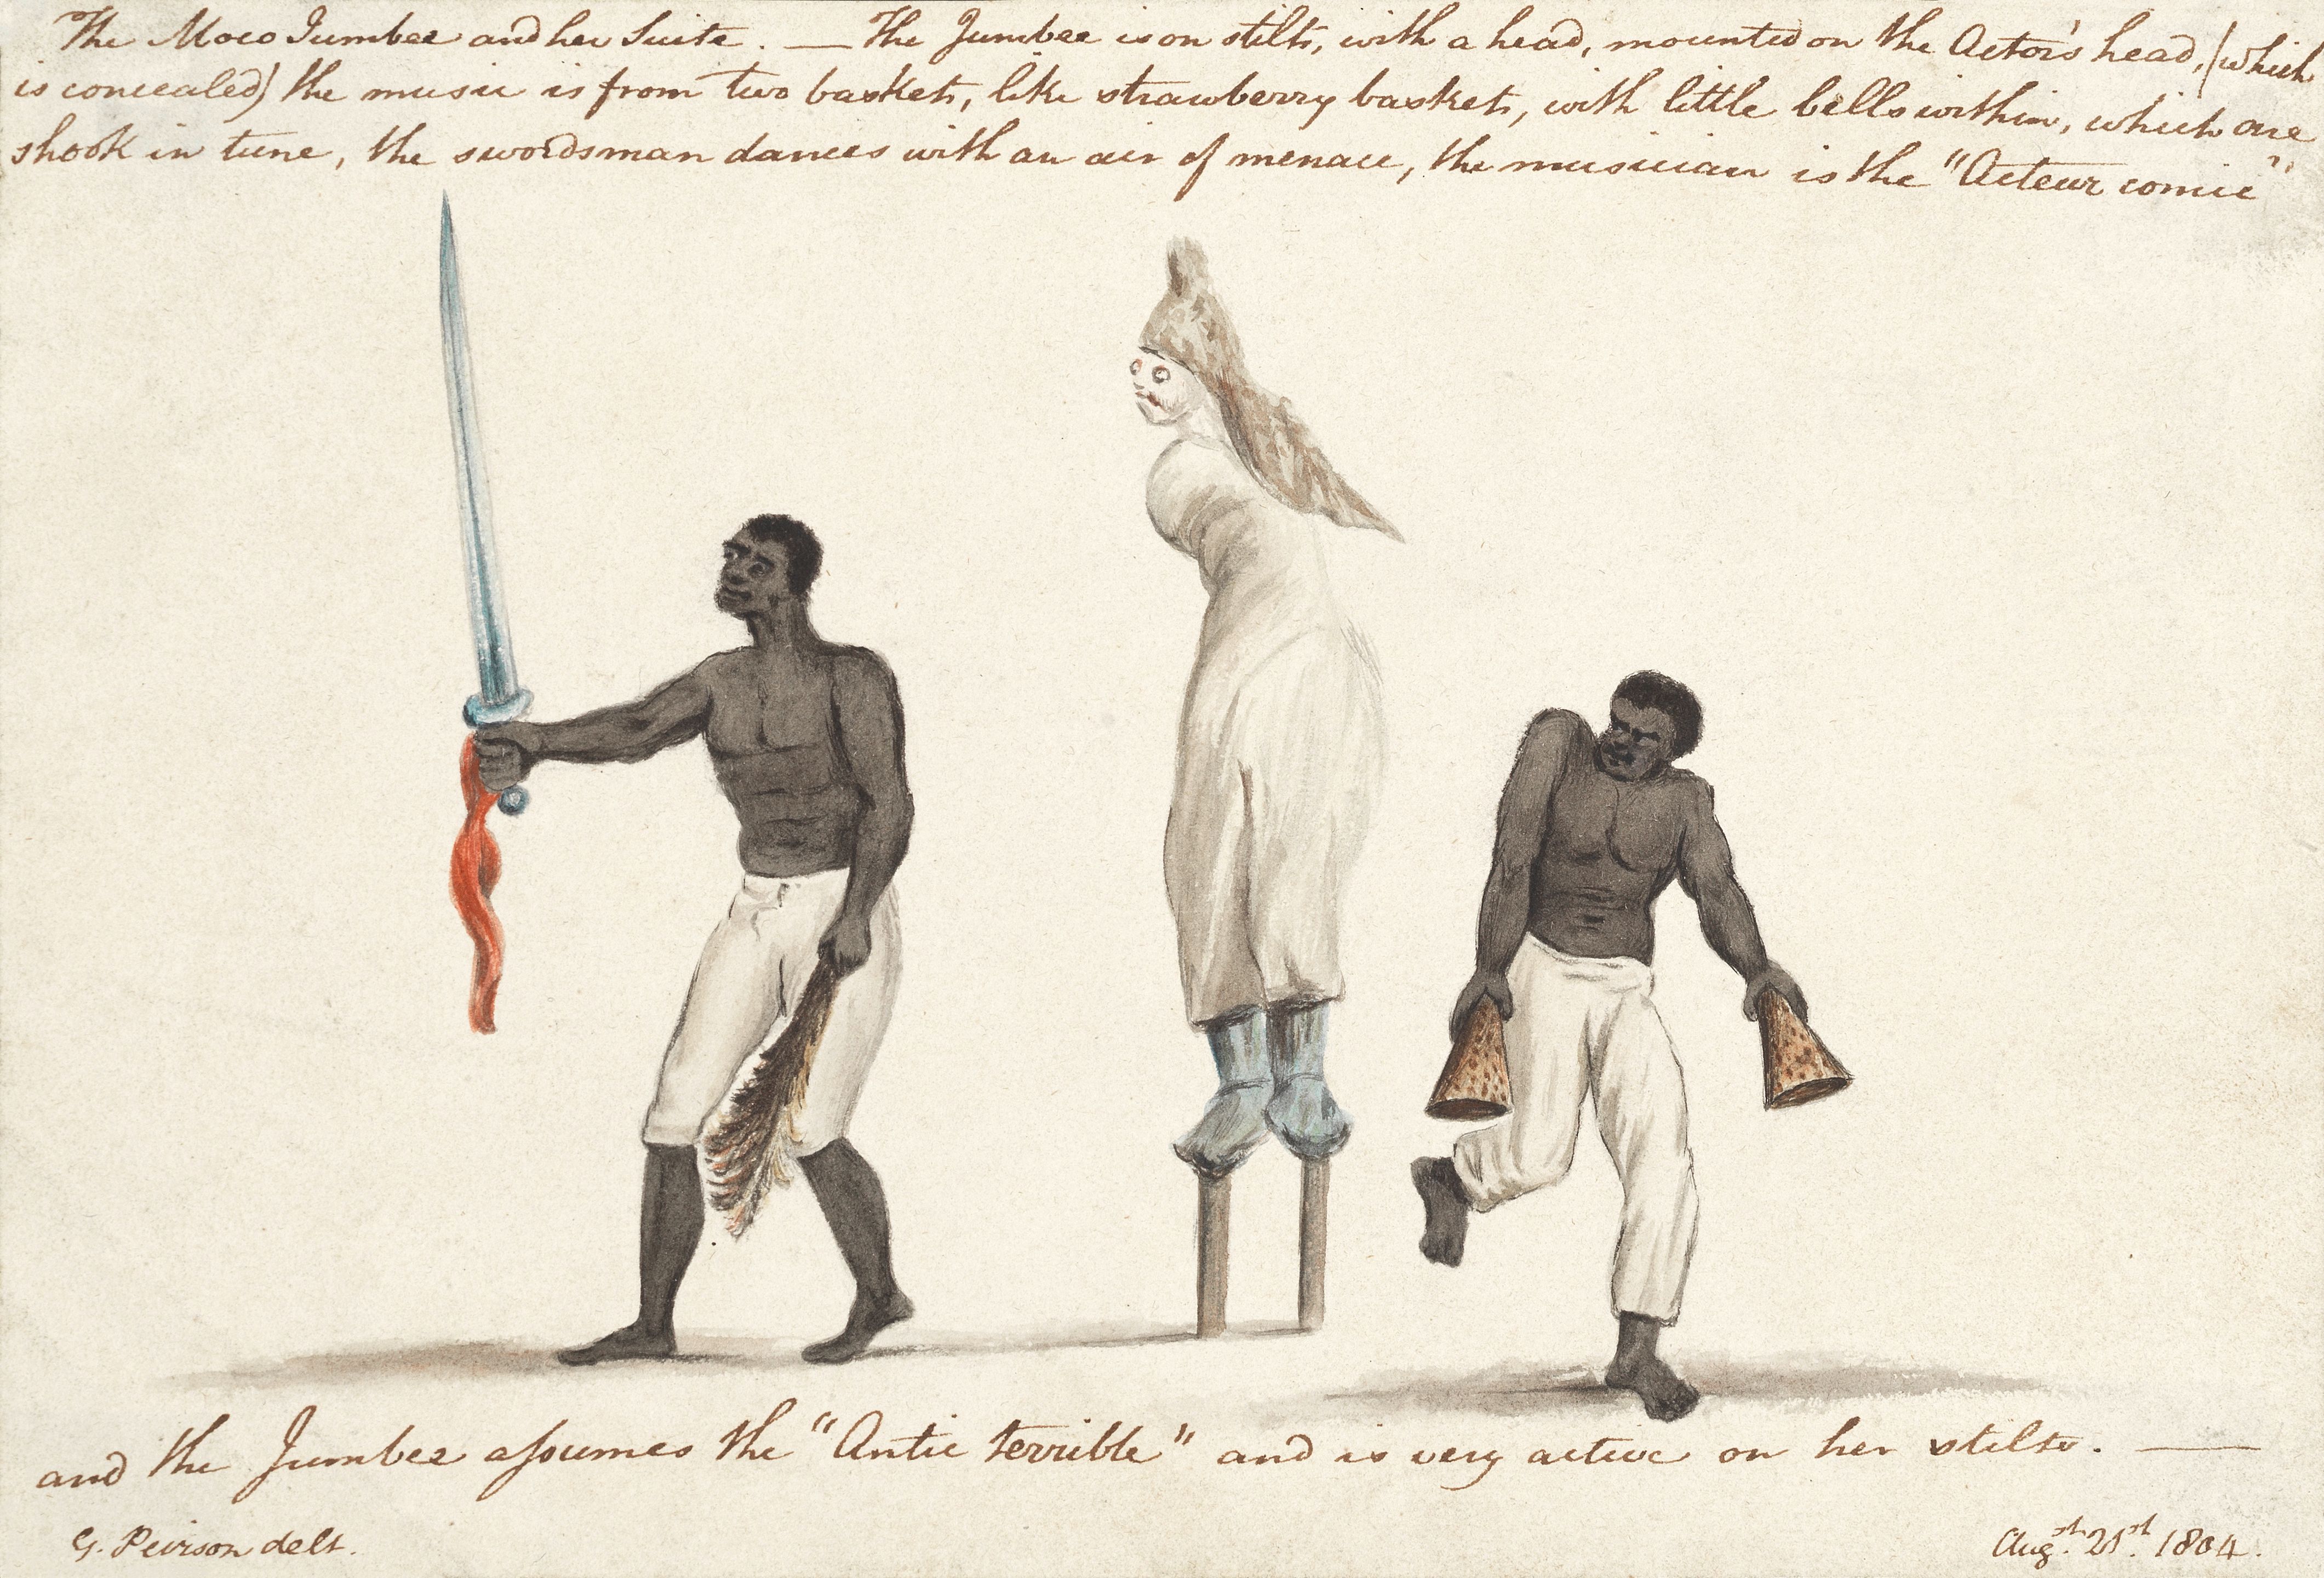 The Moco Jumbee and her Suite. — The Jumbee is on stilts, with a head, mounted on the Actor's head, (which
is concealed) the music is from two baskets, like strawberry baskets, with little bells within, which are
shook in tune, the swordsman dances with an air of menace, the musician is the "Acteur comic"
and the Jumbee aſsumes the "Antic terrible" and is very active on her stilts. —
G. Peirson delt.
Augst. 21st. 1804.